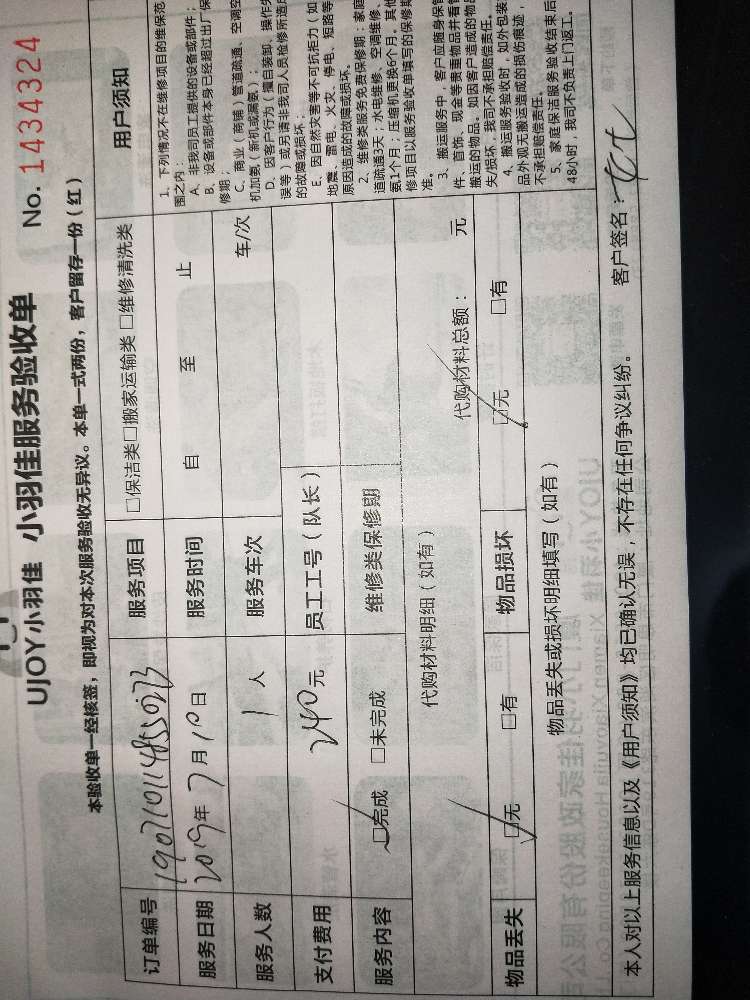 UJOY小羽佳 小羽佳服务验收单 No. 1434324
本验收单一经核签，即视为对本次服务验收无异议。本单一式两份，客户留存一份（红）
订单编号
服务项目 □保洁类□搬家运输类 □维修清洗类
服务日期 2019年 7月 10日 服务时间 自 至 止
服务人数 1 人 服务车次 车/次
支付费用 240元 员工工号（队长）
服务内容 □完成 □未完成 维修类保修期
代购材料明细（如有） 代购材料总额： 元
物品丢失 □无 □有 物品损坏 □无 □有
物品丢失或损坏明细填写（如有）
用户须知
1、下列情况不在维修项目的维保范
围之内：
A、非我司员工提供的设备或部件；
B、设备或部件本身已经超过出厂保
修期；
C、商业（商铺）管道疏通、空调空
机加氨（新机或漏氨）；
D、因客户行为（擅自装卸、操作失
误等）或另请非我司人员检修所造成
的故障或损坏；
E、因自然灾害等不可抗拒力（如
地震、雷电、火灾、停电、短路等
原因造成的故障或损坏。
2、维修类服务免费保修期：家庭
道疏通3天；水电维修、空调维修、
氨1个月；压缩机更换6个月。其他
修项目以服务验收单填写的保修期
准。
3、搬运服务中，客户应随身保管
件、首饰、现金等贵重物品并看管
搬运的物品。如因客户造成的物品
失/损坏，我司不承担赔偿责任。
4、搬运服务验收时，如外包装
品外观无搬运造成的损伤痕迹，
不承担赔偿责任。
5、家庭保洁服务验收结束后
48小时，我司不负责上门返工。
本人对以上服务信息以及《用户须知》均已确认无误，不存在任何争议纠纷。 客户签名：